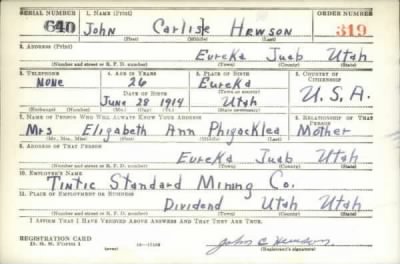 SERIAL NUMBER 1. NAME (Print) ORDER NUMBER
640 John Carlisle Hewson 319
(First) (Middle) (Last)
2. ADDRESS (Print)
Eureka Juab Utah
(Number and street or R. F. D. number) (Town) (County) (State)
3. TELEPHONE 4. AGE IN YEARS 5. PLACE OF BIRTH 6. COUNTRY OF CITIZENSHIP
None 26 Eureka
DATE OF BIRTH (Town or county)
June 28 1914 Utah U.S.A.
(Exchange) (Number) (Mo.) (Day) (Yr.) (State or country)
7. NAME OF PERSON WHO WILL ALWAYS KNOW YOUR ADDRESS 8. RELATIONSHIP OF THAT PERSON
Mrs Elizabeth Ann Mother
(Mr., Mrs., Miss) (First) (Middle) (Last)
9. ADDRESS OF THAT PERSON
Eureka Juab Utah
(Number and street or R. F. D. number) (Town) (County) (State)
10. EMPLOYER'S NAME
Tintic Standard Mining Co.
11. PLACE OF EMPLOYMENT OR BUSINESS
Dividend Utah Utah
(Number and street or R. F. D. number) (Town) (County) (State)
I AFFIRM THAT I HAVE VERIFIED ABOVE ANSWERS AND THAT THEY ARE TRUE.
REGISTRATION CARD
D. S. S. Form 1 John C Hewson
(Registrant's signature)